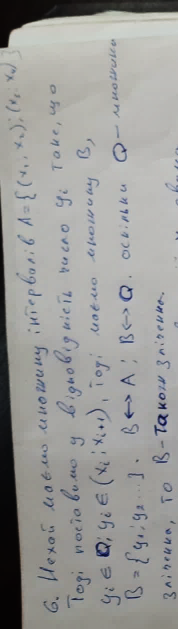 6. Нехай маємо множину інтервалів A={(x₁; x₂); (x₃; x₄)
Тоді поставимо у відповідність число yᵢ таке, що
yᵢ ∈ Q; yᵢ ∈ (xᵢ; xᵢ₊₁), тоді маємо множину B,
B = {y₁; y₂...}. B ↔ A; B ↔ Q. оскільки Q - множина
зліченна, то B - також зліченна.